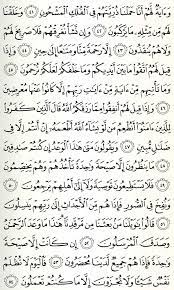 وَءَايَةٌ لَّهُمْ أَنَّا حَمَلْنَا ذُرِّيَّتَهُمْ فِي ٱلْفُلْكِ ٱلْمَشْحُونِ ٤١ وَخَلَقْنَا
لَهُم مِّن مِّثْلِهِۦ مَا يَرْكَبُونَ ٤٢ وَإِن نَّشَأْ نُغْرِقْهُمْ فَلَا صَرِيخَ لَهُمْ
وَلَا هُمْ يُنقَذُونَ ٤٣ إِلَّا رَحْمَةً مِّنَّا وَمَتَٰعًا إِلَىٰ حِينٍ ٤٤ وَإِذَا
قِيلَ لَهُمُ ٱتَّقُوا۟ مَا بَيْنَ أَيْدِيكُمْ وَمَا خَلْفَكُمْ لَعَلَّكُمْ تُرْحَمُونَ ٤٥
وَمَا تَأْتِيهِم مِّنْ ءَايَةٍ مِّنْ ءَايَٰتِ رَبِّهِمْ إِلَّا كَانُوا۟ عَنْهَا مُعْرِضِينَ ٤٦
وَإِذَا قِيلَ لَهُمْ أَنفِقُوا۟ مِمَّا رَزَقَكُمُ ٱللَّهُ قَالَ ٱلَّذِينَ كَفَرُوا۟
لِلَّذِينَ ءَامَنُوٓا۟ أَنُطْعِمُ مَن لَّوْ يَشَآءُ ٱللَّهُ أَطْعَمَهُۥٓ إِنْ أَنتُمْ إِلَّا فِي
ضَلَٰلٍ مُّبِينٍ ٤٧ وَيَقُولُونَ مَتَىٰ هَٰذَا ٱلْوَعْدُ إِن كُنتُمْ صَٰدِقِينَ ٤٨
مَا يَنظُرُونَ إِلَّا صَيْحَةً وَٰحِدَةً تَأْخُذُهُمْ وَهُمْ يَخِصِّمُونَ ٤٩
فَلَا يَسْتَطِيعُونَ تَوْصِيَةً وَلَآ إِلَىٰٓ أَهْلِهِمْ يَرْجِعُونَ ٥٠
وَنُفِخَ فِي ٱلصُّورِ فَإِذَا هُم مِّنَ ٱلْأَجْدَاثِ إِلَىٰ رَبِّهِمْ يَنسِلُونَ ٥١
قَالُوا۟ يَٰوَيْلَنَا مَنۢ بَعَثَنَا مِن مَّرْقَدِنَا هَٰذَا مَا وَعَدَ ٱلرَّحْمَٰنُ
وَصَدَقَ ٱلْمُرْسَلُونَ ٥٢ إِن كَانَتْ إِلَّا صَيْحَةً وَٰحِدَةً
فَإِذَا هُمْ جَمِيعٌ لَّدَيْنَا مُحْضَرُونَ ٥٣ فَٱلْيَوْمَ لَا تُظْلَمُ
نَفْسٌ شَيْـًٔا وَلَا تُجْزَوْنَ إِلَّا مَا كُنتُمْ تَعْمَلُونَ ٥٤